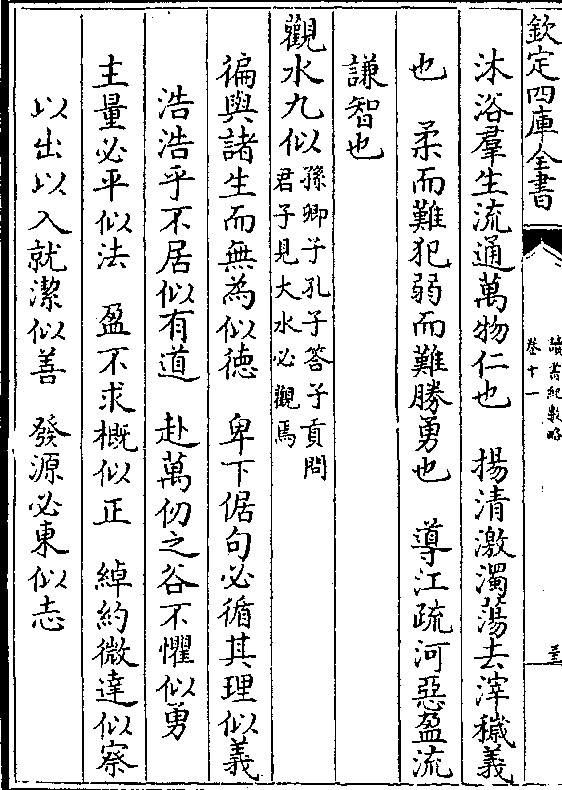 欽定四庫全書
讀書紀數略
卷十一
沐浴羣生流通萬物仁也　揚清激濁蕩去滓穢義
也　柔而難犯弱而難勝勇也　導江疏河惡盈流
謙智也
觀水九似孫卿子孔子答子貢問
君子見大水必觀焉
徧與諸生而無為似徳　卑下倨句必循其理似義
浩浩乎不居似有道　赴萬仞之谷不懼似勇
主量必平似法　盈不求概似正　綽約微達似察
以出以入就潔似善　發源必東似志